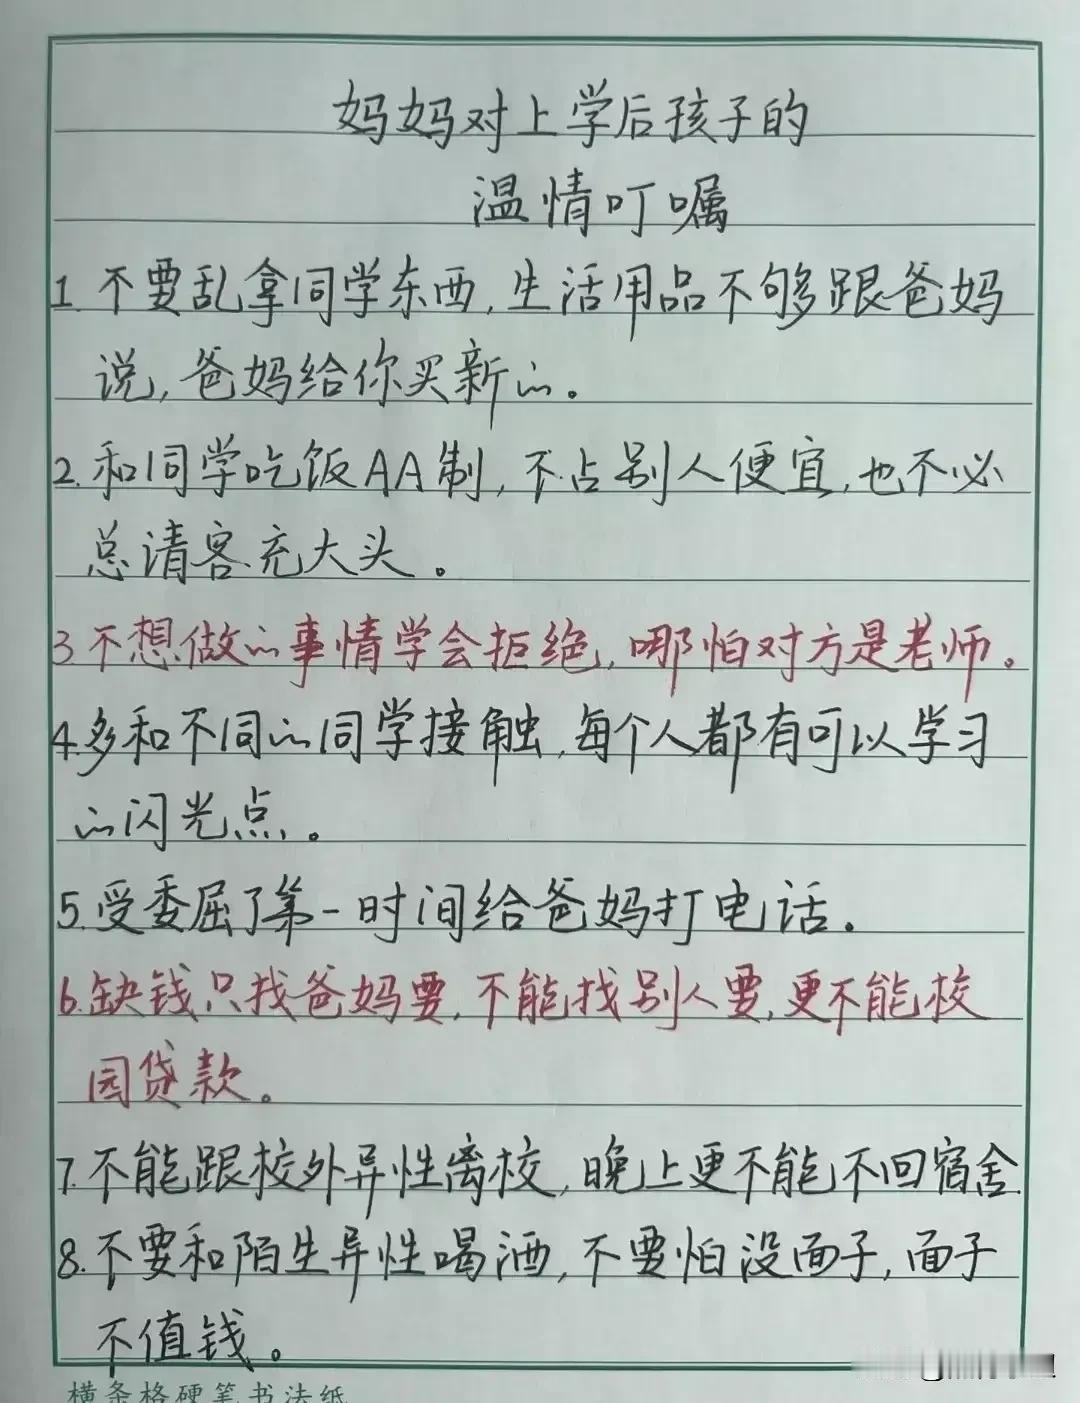 妈妈对上学后孩子的
温情叮嘱
1.不要乱拿同学东西,生活用品不够跟爸妈
说,爸妈给你买新的。
2.和同学吃饭AA制,不占别人便宜,也不必
总请客充大头。
3.不想做的事情学会拒绝,哪怕对方是老师。
4.多和不同的同学接触,每个人都有可以学习
的闪光点。
5.受委屈了第一时间给爸妈打电话.
6.缺钱只找爸妈要,不能找别人要,更不能校
园贷款。
7.不能跟校外异性离校,晚上更不能不回宿舍
8.不要和陌生异性喝酒,不要怕没面子,面子
不值钱。
横条格硬笔书法纸